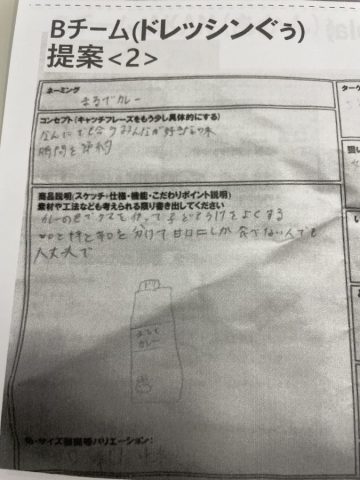 Bチーム(ドレッシンぐぅ)
提案<2>
ネーミング
まるでカレー
コンセプト(キャッチフレーズをもう少し具体的にする)
なんにでも合うみんなが好きな味
時間を節約
商品説明(スケッチ・仕様・機能・こだわりポイント説明)
素材や工法なども考えられる限り書き出してください
カレーの色でクマを作って子どもうけをよくする
を分けて甘口しか食べない人でも
大丈夫で
まるで
カレー
サイズ展開等バリエーション:
ターゲ